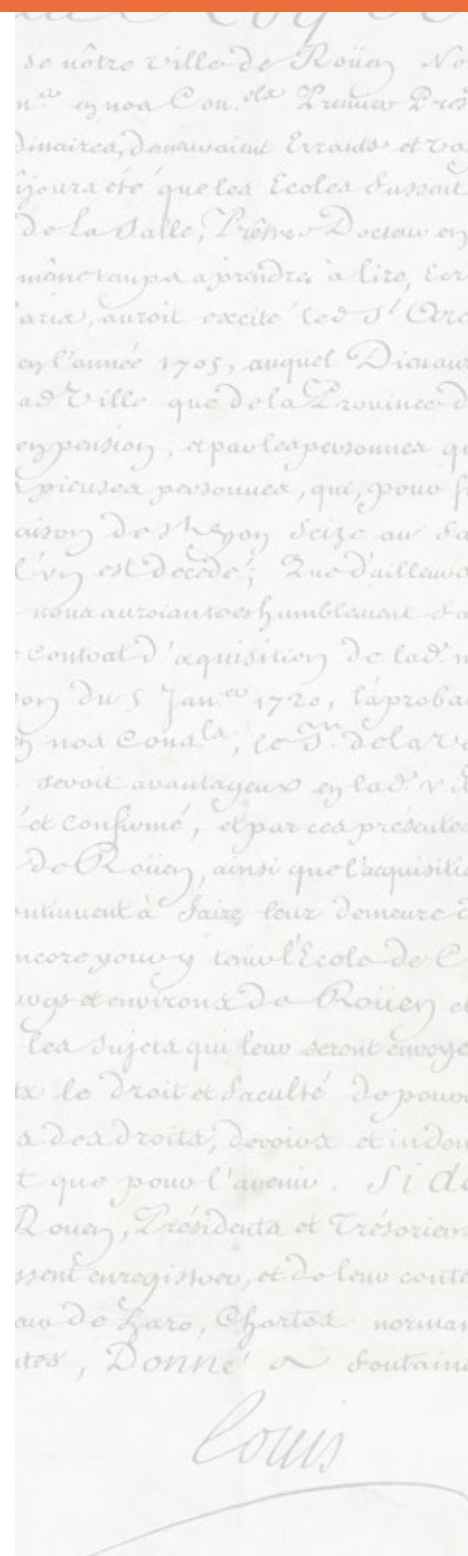 de nôtre ville de Roüen No
en nos Con.
dinaires, demeuroient Errants et va
ujours été que les Ecoles fussent
de la Salle, Prêtre Docteur en
même temps aprendre à lire, Ecr
aris, auroit excité led S.t Arc
en l'année 1705, auquel Dieu aur
lad Ville que de la Province d
en pension, et par les personnes qu
pieuses personnes, qui, pour f
aison de S.t Yon Seize au fa
l'un est decedé; Que d'ailleurs
nous auroient tres humblement fa
Contrat d'aquisition de lad. m
du 5 Jan. 1720, l'aproba
nos Cons.ls, le S.r de la Ve
seroit avantageux en lad. Vil
et Confirmé, et par ces présentes
de Roüen, ainsi que l'acquisitio
ontinuent à faire leur demeure d
ncore pour y tenir l'Ecole de C
et environs de Roüen et
les Sujets qui leur seront envoyé
le droit et faculté de pouvo
des droits, devoirs et indem
t que pour l'avenir. Si do
Rouen, Présidents et Trésoriers
ssent enregistrer, et de leur conte
de Haro, Chartes norman
tes, Donné a fontaine
Louis